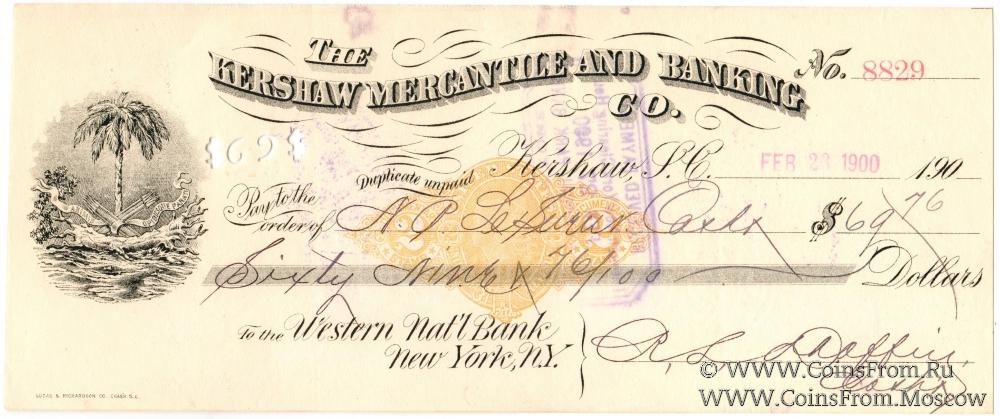 THE
KERSHAW MERCANTILE AND BANKING CO.
No. 8829
$69$
Duplicate unpaid
Kershaw, S.C. FEB 23 1900 190
Pay to the order of N. P. Cashr $69 76
Sixty Nine x 76/100 Dollars
To the Western Nat'l Bank
New York, N.Y.
R. L. Cashr
LUCAS & RICHARDSON CO. CHAS'N S.C.
www.CoinsFrom.Ru
www.CoinsFrom.Moscow